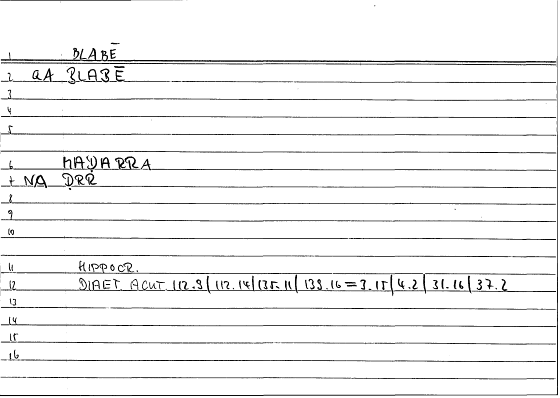 1 BLABĒ
2 aA BLABĒ
3
4
5
6 MAḌARRA
7 NA ḌRR
8
9
10
11 HIPPOCR.
12 DIAET. ACUT. 112.9|112.14|135.11|139.16=3.15|4.2|31.16|37.2
13
14
15
16